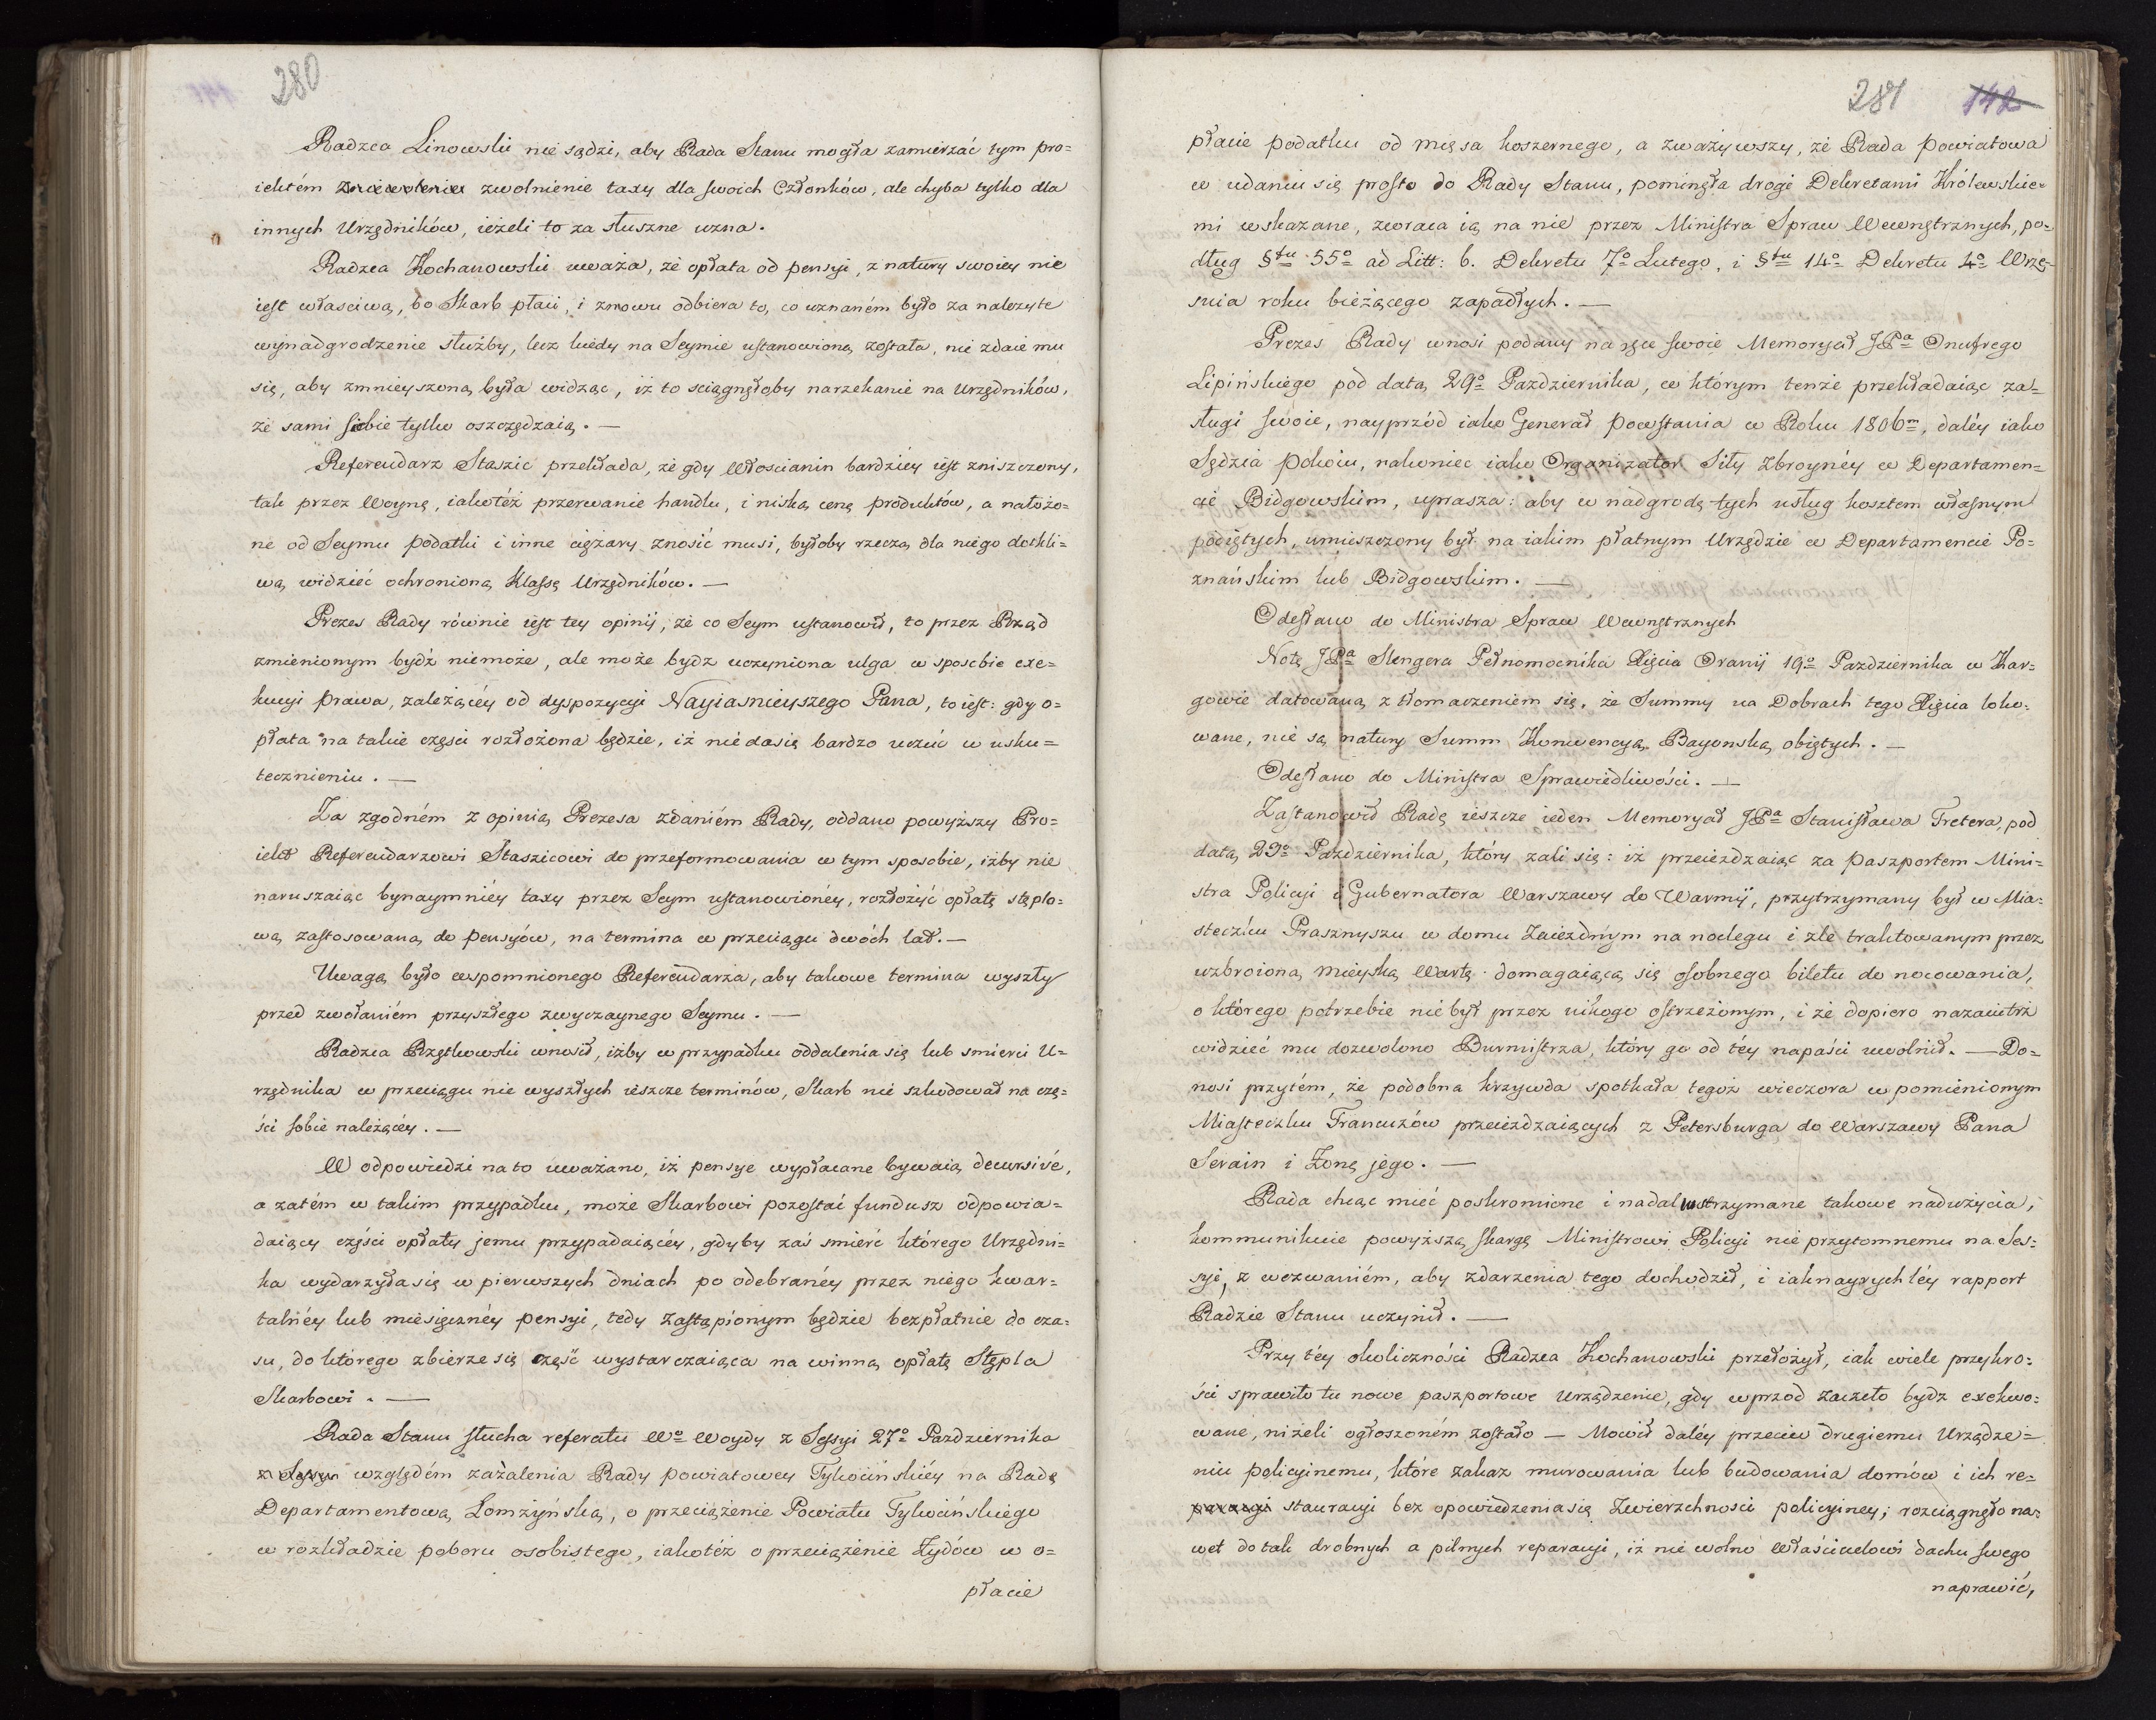 280
Radzca Linowski nie sądzi, aby Rada Stanu mogła zamierzać tym pro=
iektém zwolnienie taxy dla swoich Członków, ale chyba tylko dla
innych Urzędników, ieżeli to za słuszne uzna.
Radzca Kochanowski uważa, że opłata od pensyi, z natury swoiey nie
iest właściwą, bo Skarb płaci, i znowu odbiera to, co uznaném było za należyte
wynadgrodzenie służby, lecz kiedy na Seymie ustanowioną została, nie zdaie mu
się, aby zmnieyszoną była widząc, iż to sciągnęłoby narzekanie na Urzędników,
że sami siebie tylko oszczędzaią. —
Referendarz Staszic przekłada, że gdy Włościanin bardziéy iest zniszczony,
tak przez Woynę, iakotéż przerwanie handlu, i niską cenę produktów, a nałożo=
ne od Seymu podatki i inne ciężary znosić musi, byłoby rzeczą dla niego dotkli=
wą, widzieć ochronioną Klassę Urzędników. —
Prezes Rady równie iest tey opinij, że co Seym ustanowił, to przez Rząd
zmienionym bydź niemoże, ale może bydz uczyniona ulga w sposobie exe=
kucyi prawa, zależącéy od dyspozycyi Nayiasnieyszego Pana, to iest: gdy o=
płata na takie części rozłożona będzie, iż nie da się bardzo uczuć w usku=
tecznieniu. —
Za zgodném z opinią Prezesa zdaniém Rady, oddano powyższy Pro=
iekt Referendarzowi Staszicowi do przeformowania w tym sposobie, iżby nie
naruszaiąc bynaymniéy taxy przez Seym ustanowionéy, rozłożyć opłatę stęplo=
wą zastosowaną do pensyów, na termina w przeciągu dwóch lat. —
Uwagą było wspomnionego Referendarza, aby takowe termina wyszły
przed zwołaniém przyszłego zwyczaynego Seymu. —
Radzca Rzętkowski wnosił, iżby w przypadku oddalenia się lub smierci U=
rzędnika w przeciągu nie wyszłych ieszcze terminów, Skarb nie szkodował na czę=
ści sobie należącéy. —
W odpowiedzi na to uważano, iż pensye wypłacane bywaią decursivé,
a zatém w takim przypadku, może Skarbowi pozostać fundusz odpowia=
daiący części opłaty jemu przypadaiącéy, gdyby zaś smierć którego Urzędni=
ka wydarzyła się w pierwszych dniach po odebranéy przez niego kwar=
talnéy lub miesięcznéy pensyi, tedy zastąpionym będzie bezpłatnie do cza=
su, do którego zbierze się część wystarczaiąca na winną opłatę Stępla
Skarbowi. —
Rada Stanu słucha referatu Wo Woydy z Sessyi 27o Pazdziernika
z Sessyi względém zażalenia Rady powiatowey Tykocińskiéy na Radę
Departamentową Łomżyńską, o przeciążenie Powiatu Tykocińskiego
w rozkładzie poboru osobistego, iakotéż o przeciążenie Żydów w o=
płacie
281 142
płacie podatku od mięsa koszernego, a zważywszy, że Rada powiatowa
w udaniu się prosto do Rady Stanu, pominęła drogi Dekretami Królewskie=
mi wskazane, zwraca ią na nie przez Ministra Spraw Wewnętrznych, po=
dług §fu 55o ad Litt: b. Dekretu 7o Lutego, i §fu 14o Dekretu 4o Wrze=
snia roku bieżącego zapadłych. —
Prezes Rady wnosi podany na ręce swoie Memoryał JPa Onufrego
Lipińskiego pod datą 29o Pazdziernika, w którym tenże przekładaiąc za=
sługi swoie, nayprzód iako Generał powstania w Roku 1806m, daléy iako
Sędzia Pokoiu, nakoniec iako Organizator Siły zbroynéy w Departamen=
cie Bidgowskim, uprasza: aby w nadgrodę tych usług kosztem własnym
podiętych, umieszczony był na iakim płatnym Urzędzie w Departamencie Po=
znańskim lub Bidgowskim. —
Odesłano do Ministra Spraw Wewnętrznych
Notę JPa Stengera Pełnomocnika Xięcia Oranij 19o Pazdziernika w Kar=
gowie datowaną z tłomaczeniem się, że Summy na Dobrach tego Xięcia loko=
wane, nie są natury Summ Konwencyą Bayonską obiętych. —
Odesłano do Ministra Sprawiedliwości. —
Zastanowił Radę ieszcze ieden Memoryał JPa Stanisława Tretera, pod
datą 29o Pazdziernika, który żali się: iż przeieżdzaiąc za paszportem Mini=
stra Policyi i Gubernatora Warszawy do Warmij, przytrzymany był w Mia=
steczku Prasznyszu w domu Zaiezdnym na noclegu i zle traktowanym przez
uzbroioną mieyską Wartę domagaiącą się osobnego biletu do nocowania,
o którego potrzebie nie był przez nikogo ostrzeżonym, i że dopiero nazaiutrz
widzieć mu dozwolono Burmistrza, który go od téy napaści uwolnił. — Do=
nosi przytém, że podobna krzywda spotkała tegoż wieczora w pomienionym
Miasteczku Francuzów przeieżdzaiących z Petersburga do Warszawy Pana
Serain i Żonę jego. —
Rada chcąc mieć poskromione i nadal wstrzymane takowe nadużycia,
kommunikuie powyższą skargę Ministrowi Policyi nie przytomnemu na Ses=
syi, z wezwaniém, aby zdarzenia tego dochodził, i iaknayrychléy rapport
Radzie Stanu uczynił. —
Przy téy okoliczności Radzca Kochanowski przełożył, iak wiele przykro=
ści sprawiło tu nowe paszportowe Urządzenie, gdy wprzód zaczęto bydz exekwo=
wane, niżeli ogłoszoném zostało — Mowił daléy przeciw drugiemu Urządze=
niu policyinemu, które zakaz murowania lub budowania domów i ich re=
stauracyi bez opowiedzenia się Zwierzchnosci policyiney; rozciągnęło na=
wet do tak drobnych a pilnych reparacyi, iż nie wolno Właścicielowi dachu swego
naprawić,